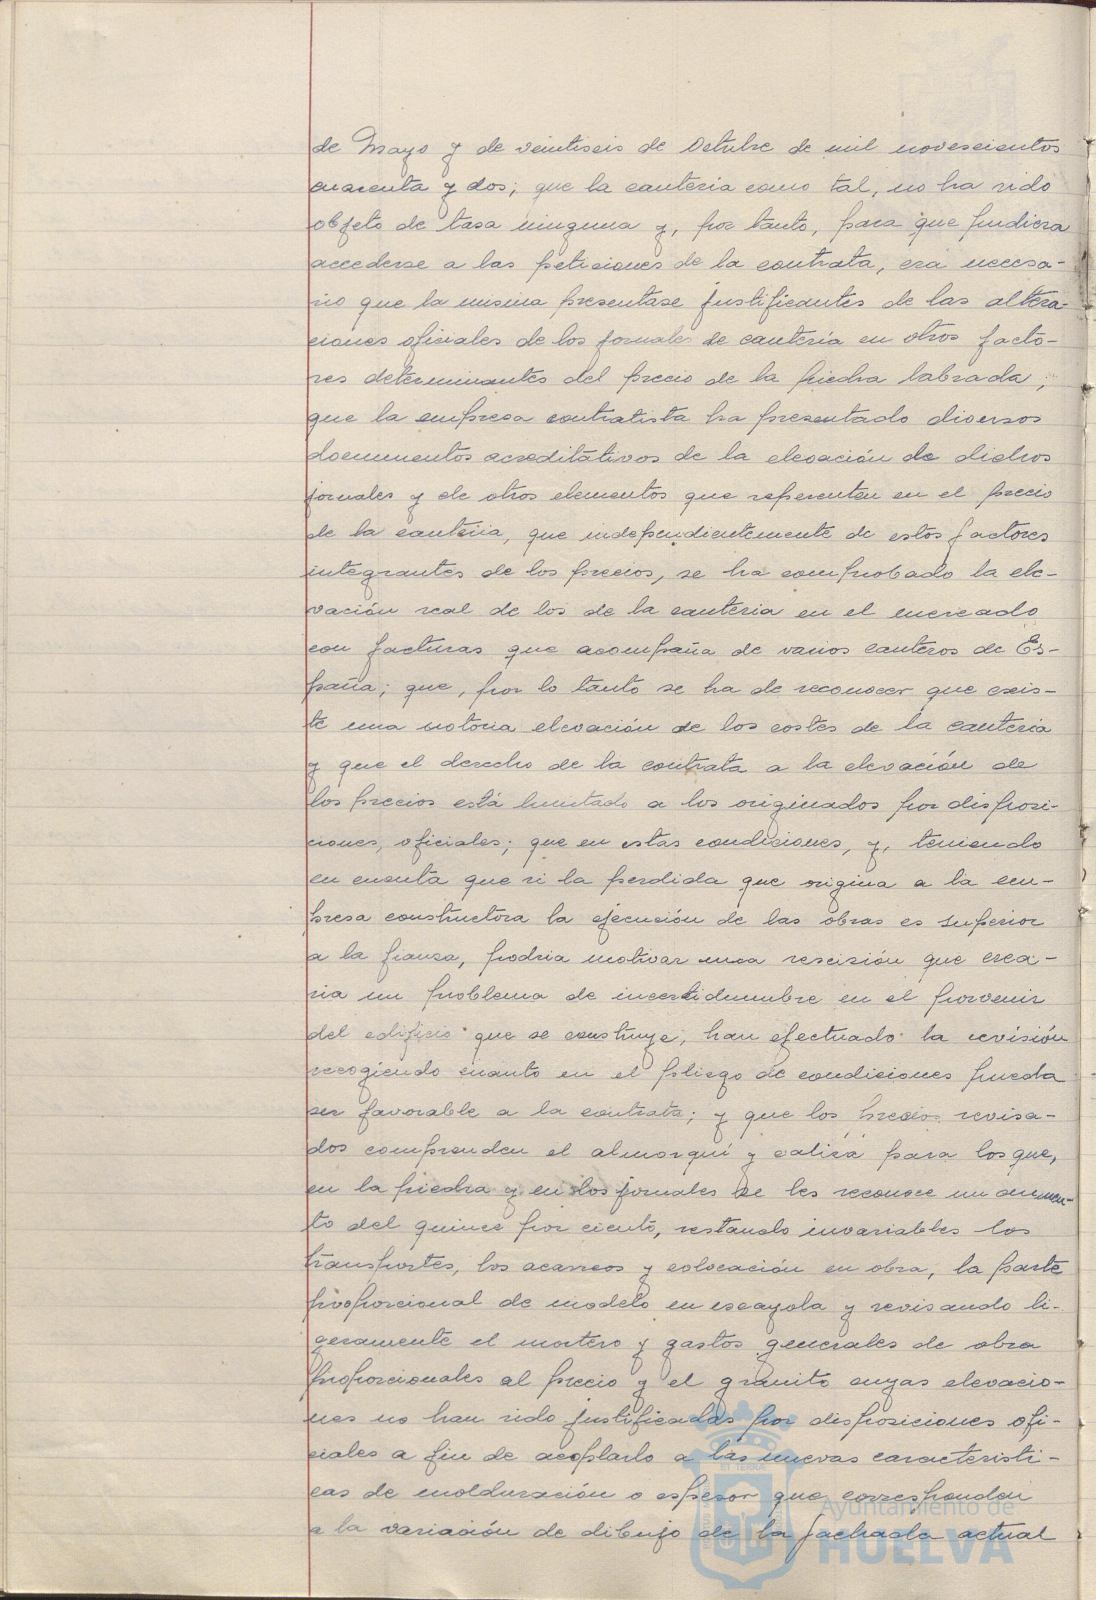 de Mayo y de veintiseis de Octubre de mil novescientos
cuarenta y dos; que la canteria como tal, no ha sido
objeto de tasa ninguna y, por tanto, para que pudiera
accederse a las peticiones de la contrata, era necesa-
rio que la misma presentase justificantes de las altera-
ciones oficiales de los jornales de cantería en otros facto-
res determinantes del precio de la piedra labrada;
que la empresa contratista ha presentado diversos
documentos acreditativos de la elevación de dichos
jornales y de otros elementos que reperenten en el precio
de la canteria, que independientemente de estos factores
integrantes de los precios, se ha comprobado la ele-
vación real de los de la canteria en el mercado
con facturas que acompaña de varios canteros de Es-
paña; que, por lo tanto se ha de reconocer que exis-
te una notoria elevación de los costes de la canteria
y que el derecho de la contrata a la elevación de
los precios está limitado a los originados por disposi-
ciones, oficiales; que en estas condiciones, y, teniendo
en cuenta que si la perdida que origina a la em-
presa constructora la ejecución de las obras es superior
a la fianza, podria motivar una rescisión que crea-
ria un problema de incertidumbre en el porvenir
del edificio que se construye, han efectuado la revisión
recogiendo cuanto en el pliego de condiciones pueda
ser favorable a la contrata; y que los precios revisa-
dos comprenden el almorquí y caliza para los que,
en la piedra y en los jornales se les reconoce un aumen-
to del quince por ciento, restando invariables los
transportes, los acarreos y colocación en obra, la parte
proporcional de modelo en escayola y revisando li-
geramente el mortero y gastos generales de obra
proporcionales al precio y el granito cuyas elevacio-
nes no han sido justificadas por disposiciones ofi-
ciales a fin de acoplarlo a las nuevas caracteristi-
cas de molduración o espesor que corresponden
a la variación de dibujo de la fachada actual
Ayuntamiento de
HUELVA